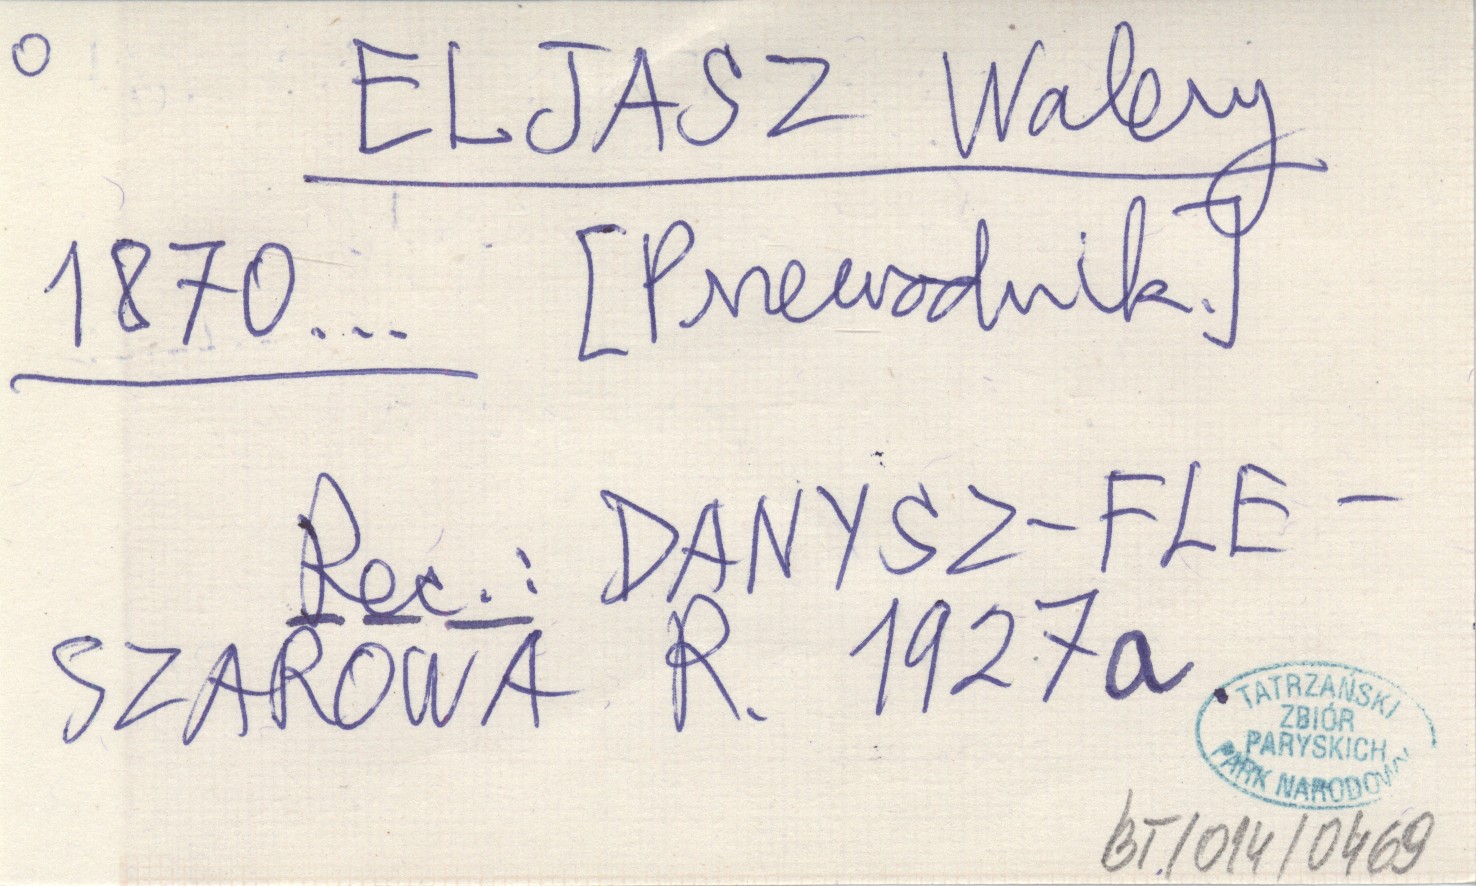 O ELJASZ Walery
1870... [Przewodnik.]
Rec.: DANYSZ-FLE-
SZAROWA R. 1927a.
TATRZAŃSKI
ZBIÓR
PARYSKICH
PARK NARODOWY
BT/014/0469